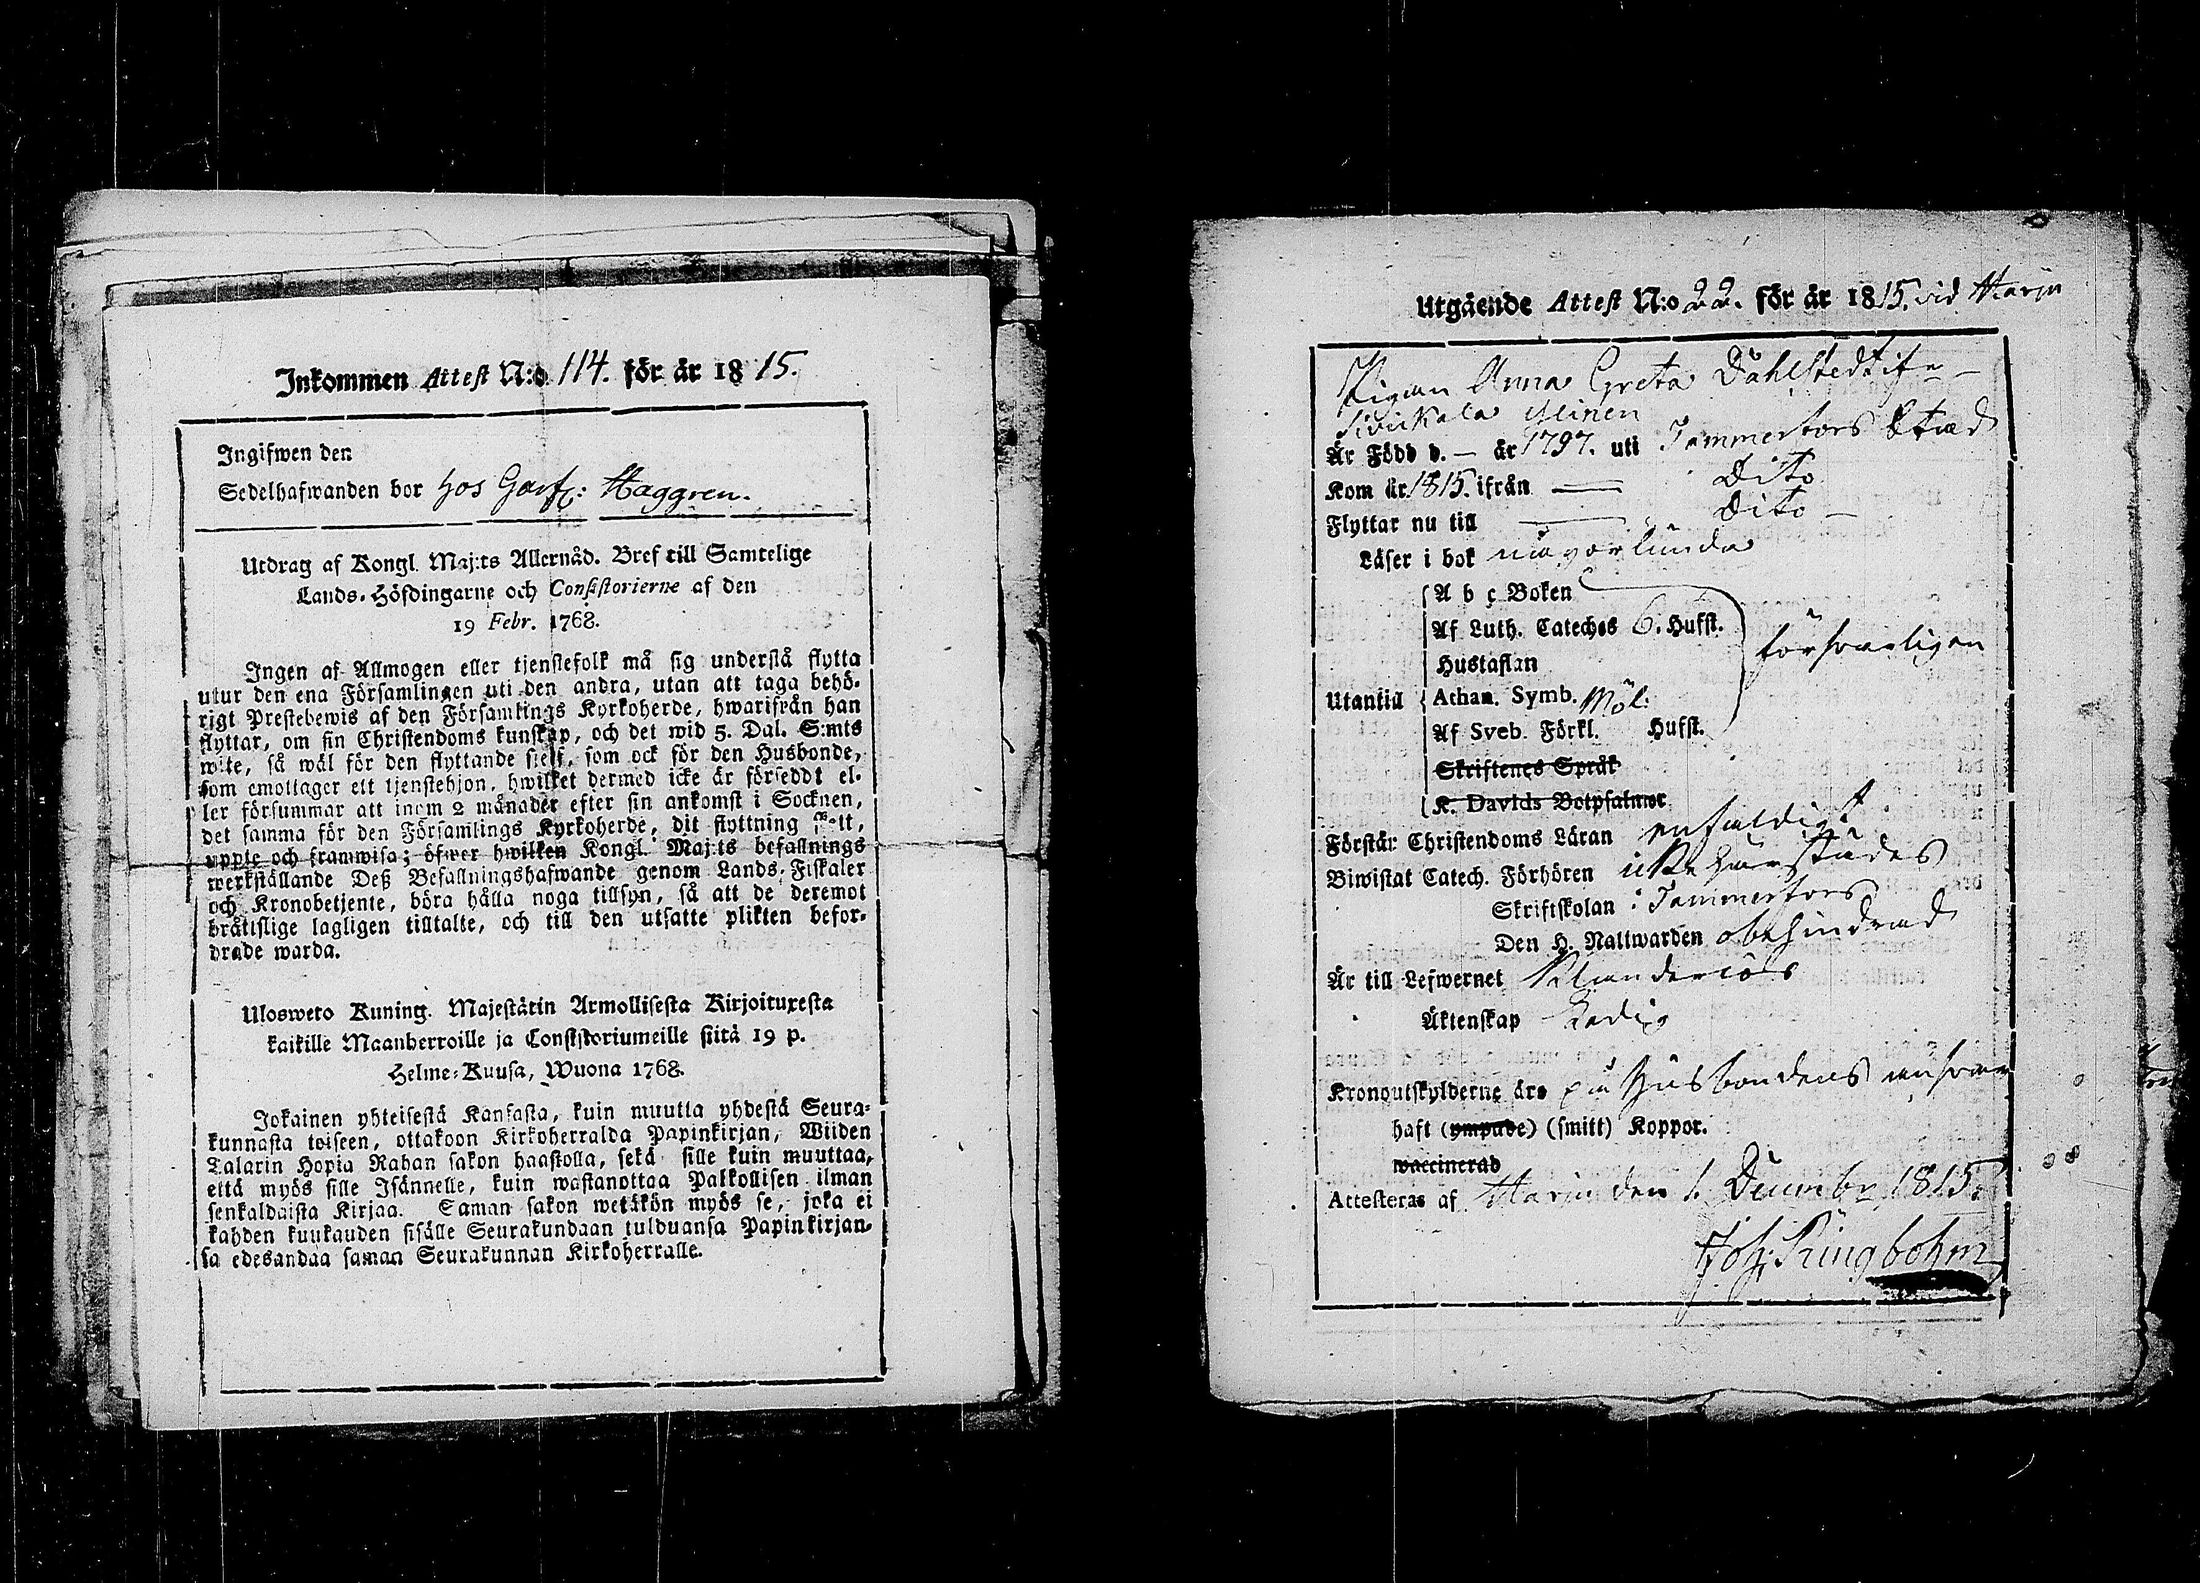 Inkommen Attest N:o 114. för år 1815.
Ingifwen den
Sedelhafwanden bor hos Garf: Haggren.
Utdrag af Kongl. Maj:ts Allernåd. Bref till Samtelige
Lands-Höfdingarne och Consistorierne af den
19 Febr. 1768.
Ingen af Allmogen eller tjenstefolk må sig understå flytta
utur den ena Församlingen uti den andra, utan att taga behö-
rigt Prestebewis af den Församlings Kyrkoherde, hwarifrån han
flyttar, om sin Christendoms kunskap, och det wid 5. Dal. S:mts
wite, så wäl för den flyttande sielf, som ock för den Husbonde,
som emottager ett tjenstehjon, hwilket dermed icke är försedt el-
ler försummar att inom 2 månader efter sin ankomst i Socknen,
det samma för den Församlings Kyrkoherde, dit flyttning skett,
uppte och framwisa; öfwer hwilken Kongl. Maj:ts befallnings
werkställande Deß Befallningshafwande genom Lands-Fiskaler
och Kronobetjente, böra hålla noga tillsyn, så att de deremot
bråtislige lagligen tilltalte, och till den utsatte plikten befor-
drade warda.
Ulosweto Kuning. Majestätin Armollisesta Kirjoituxesta
kaikille Maanherroille ja Consistoriumeille siitä 19 p.
Helme-Kuusa, Wuona 1768.
Jokainen yhteisestä Kansasta, kuin muutta yhdestä Seura-
kunnasta toiseen, ottakoon Kirkoherralda Papinkirjan, Wiiden
Talarin Hopia Rahan sakon haastolla, sekä sille kuin muuttaa,
että myös sille Isännelle, kuin wastanottaa Palkollisen ilman
senkaldaista Kirjaa. Saman sakon wetäkön myös se, joka ei
kahden kuukauden sisälle Seurakundaan tulduansa Papinkirjan-
sa edesandaa saman Seurakunnan Kirkoherralle.
Utgående Attest N:o 22. för år 1815. vid Harju
Pigan Anna Greta Dahlstedt ifr
Är Född d. — år 1797. uti Tammerfors Stad
Kom år 1815. ifrån — Dito
Flyttar nu till — Dito —
Läser i bok någorlunda
A b c Boken
Af Luth. Cateches 6. Hufst.
Hustaflan
försvarligen
Utantill
Athan. Symb. Möl:
Af Sveb. Förkl. Hufst.
Skriftenes Språk
K. Davids Botpsalmer
Förstår Christendoms Läran enfaldigt
Biwistat Catech. Förhören icke härstädes
Skriftskolan i Tammerfors
Den H. Nattwarden obehindrad
Är till Lefwernet klanderlös
Äktenskap Ledig
Kronoutskylderne äro på Husbondens ansvar
haft (ympade) (smitt) Koppor.
waccinerad
Attesteras af Harju den 1. December 1815.
Joh: Ringbohm